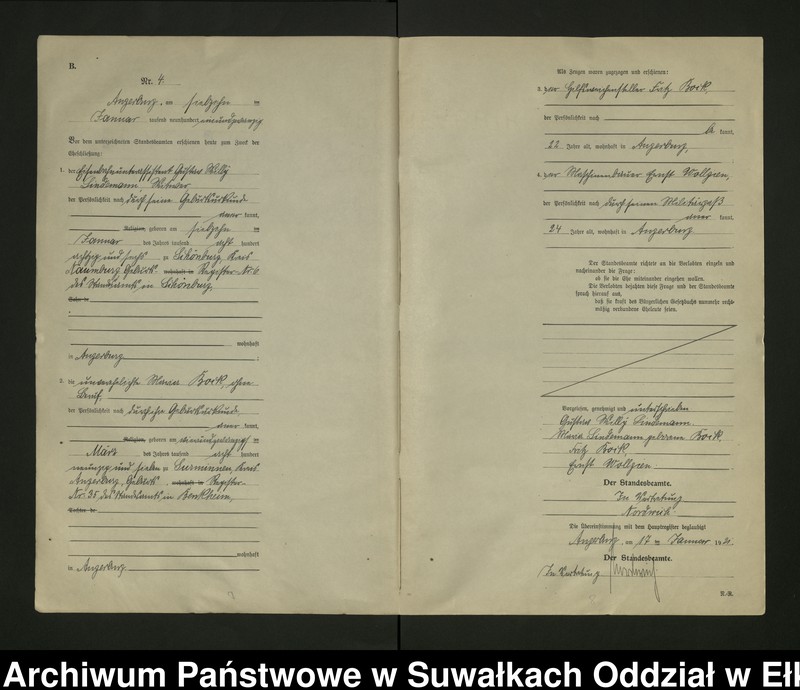 B.
Nr. 4.
Angerburg, am siebzehn ten
Januar tausend neunhundert einundzwanzig
Vor dem unterzeichneten Standesbeamten erschienen heute zum Zweck der
Eheschließung:
1. der Eisenbahnunterassistent Gustav Willy
Lindemann, Witwer
der Persönlichkeit nach durch seine Geburtsurkunde
kannt,
Religion, geboren am siebzehn ten
Januar des Jahres tausend acht hundert
achtzig und sechs zu Schönburg, Kreis
Naumburg Geburts wohnhaft in Register Nr. 6
des Standesamts in Schönburg,
Sohn de
wohnhaft
in Angerburg ;
2. die unverehelichte Maria Boik, ohne
Beruf,
der Persönlichkeit nach durch ihre Geburtsurkunde
kannt,
Religion, geboren am einundzwanzig ten
März des Jahres tausend acht hundert
neunzig und sieben zu Surminnen, Kreis
Angerburg, Geburts wohnhaft in Register
Nr. 35 des Standesamts in Benkheim,
Tochter de
wohnhaft
in Angerburg.
Als Zeugen waren zugezogen und erschienen:
3. der Hilfsweichensteller Fritz Boik
der Persönlichkeit nach
be kannt,
22 Jahre alt, wohnhaft in Angerburg,
4. der Maschinenbauer Ernst Wollgien,
der Persönlichkeit nach durch seinen Militärpaß
kannt,
24 Jahre alt, wohnhaft in Angerburg.
Der Standesbeamte richtete an die Verlobten einzeln und
nacheinander die Frage:
ob sie die Ehe miteinander eingehen wollen.
Die Verlobten bejahten diese Frage und der Standesbeamte
sprach hierauf aus,
daß sie kraft des Bürgerlichen Gesetzbuchs nunmehr recht-
mäßig verbundene Eheleute seien.
Vorgelesen, genehmigt und unterschrieben
Gustav Willy Lindemann.
Maria Lindemann geborene Boik.
Fritz Boik.
Ernst Wollgien
Der Standesbeamte.
In Vertretung
Die Übereinstimmung mit dem Hauptregister beglaubigt
Angerburg, am 17 ten Januar 19 21
Der Standesbeamte.
In Vertretung
R.-R.
Archiwum Państwowe w Suwałkach Oddział w Ełk